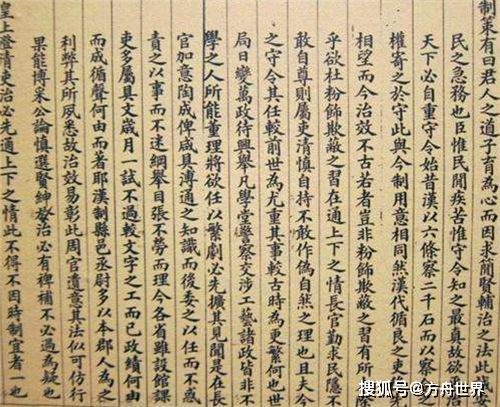 制策有曰君人之道子育為心而因求閭賢輔治之法此
民之急務也臣惟民間疾苦惟守令知之最真故欲
天下必自重守令始昔漢以六條察二千石而以察
權寄之於守此與今制用意相同然漢代循良之吏
相望而今治效不古若者豈非粉飾欺蔽之習有所
乎欲杜粉飾欺蔽之習在通上下之情長官勤求民隱不
敢自尊則屬吏清慎自持不敢作偽自然之理也且夫今
之守令其任較前世為尤重其事較古時為更繁何也世
局日變萬政待興舉凡學堂警察交涉工藝諸政皆非不
學之人所能董理將欲任以繁劇必先擴其見聞是在長
官加意陶成俾咸具溥通之知識而後委之以任而不惑
責之以事而不迷綱舉目張不勞而理今各省雖設館課
吏多屬具文歲月一試不過較文字之工而已政績何由
而成循聲何由而著耶漢制縣邑丞尉多以本郡人為之
利弊其所夙悉故治效易彰此周官遺意其法似可仿行
果能博采公論慎選賢紳於治必有裨補不必過為疑也
皇上澄清吏治必先通上下之情此不得不因時制宜者一也
搜狐号@方舟世界